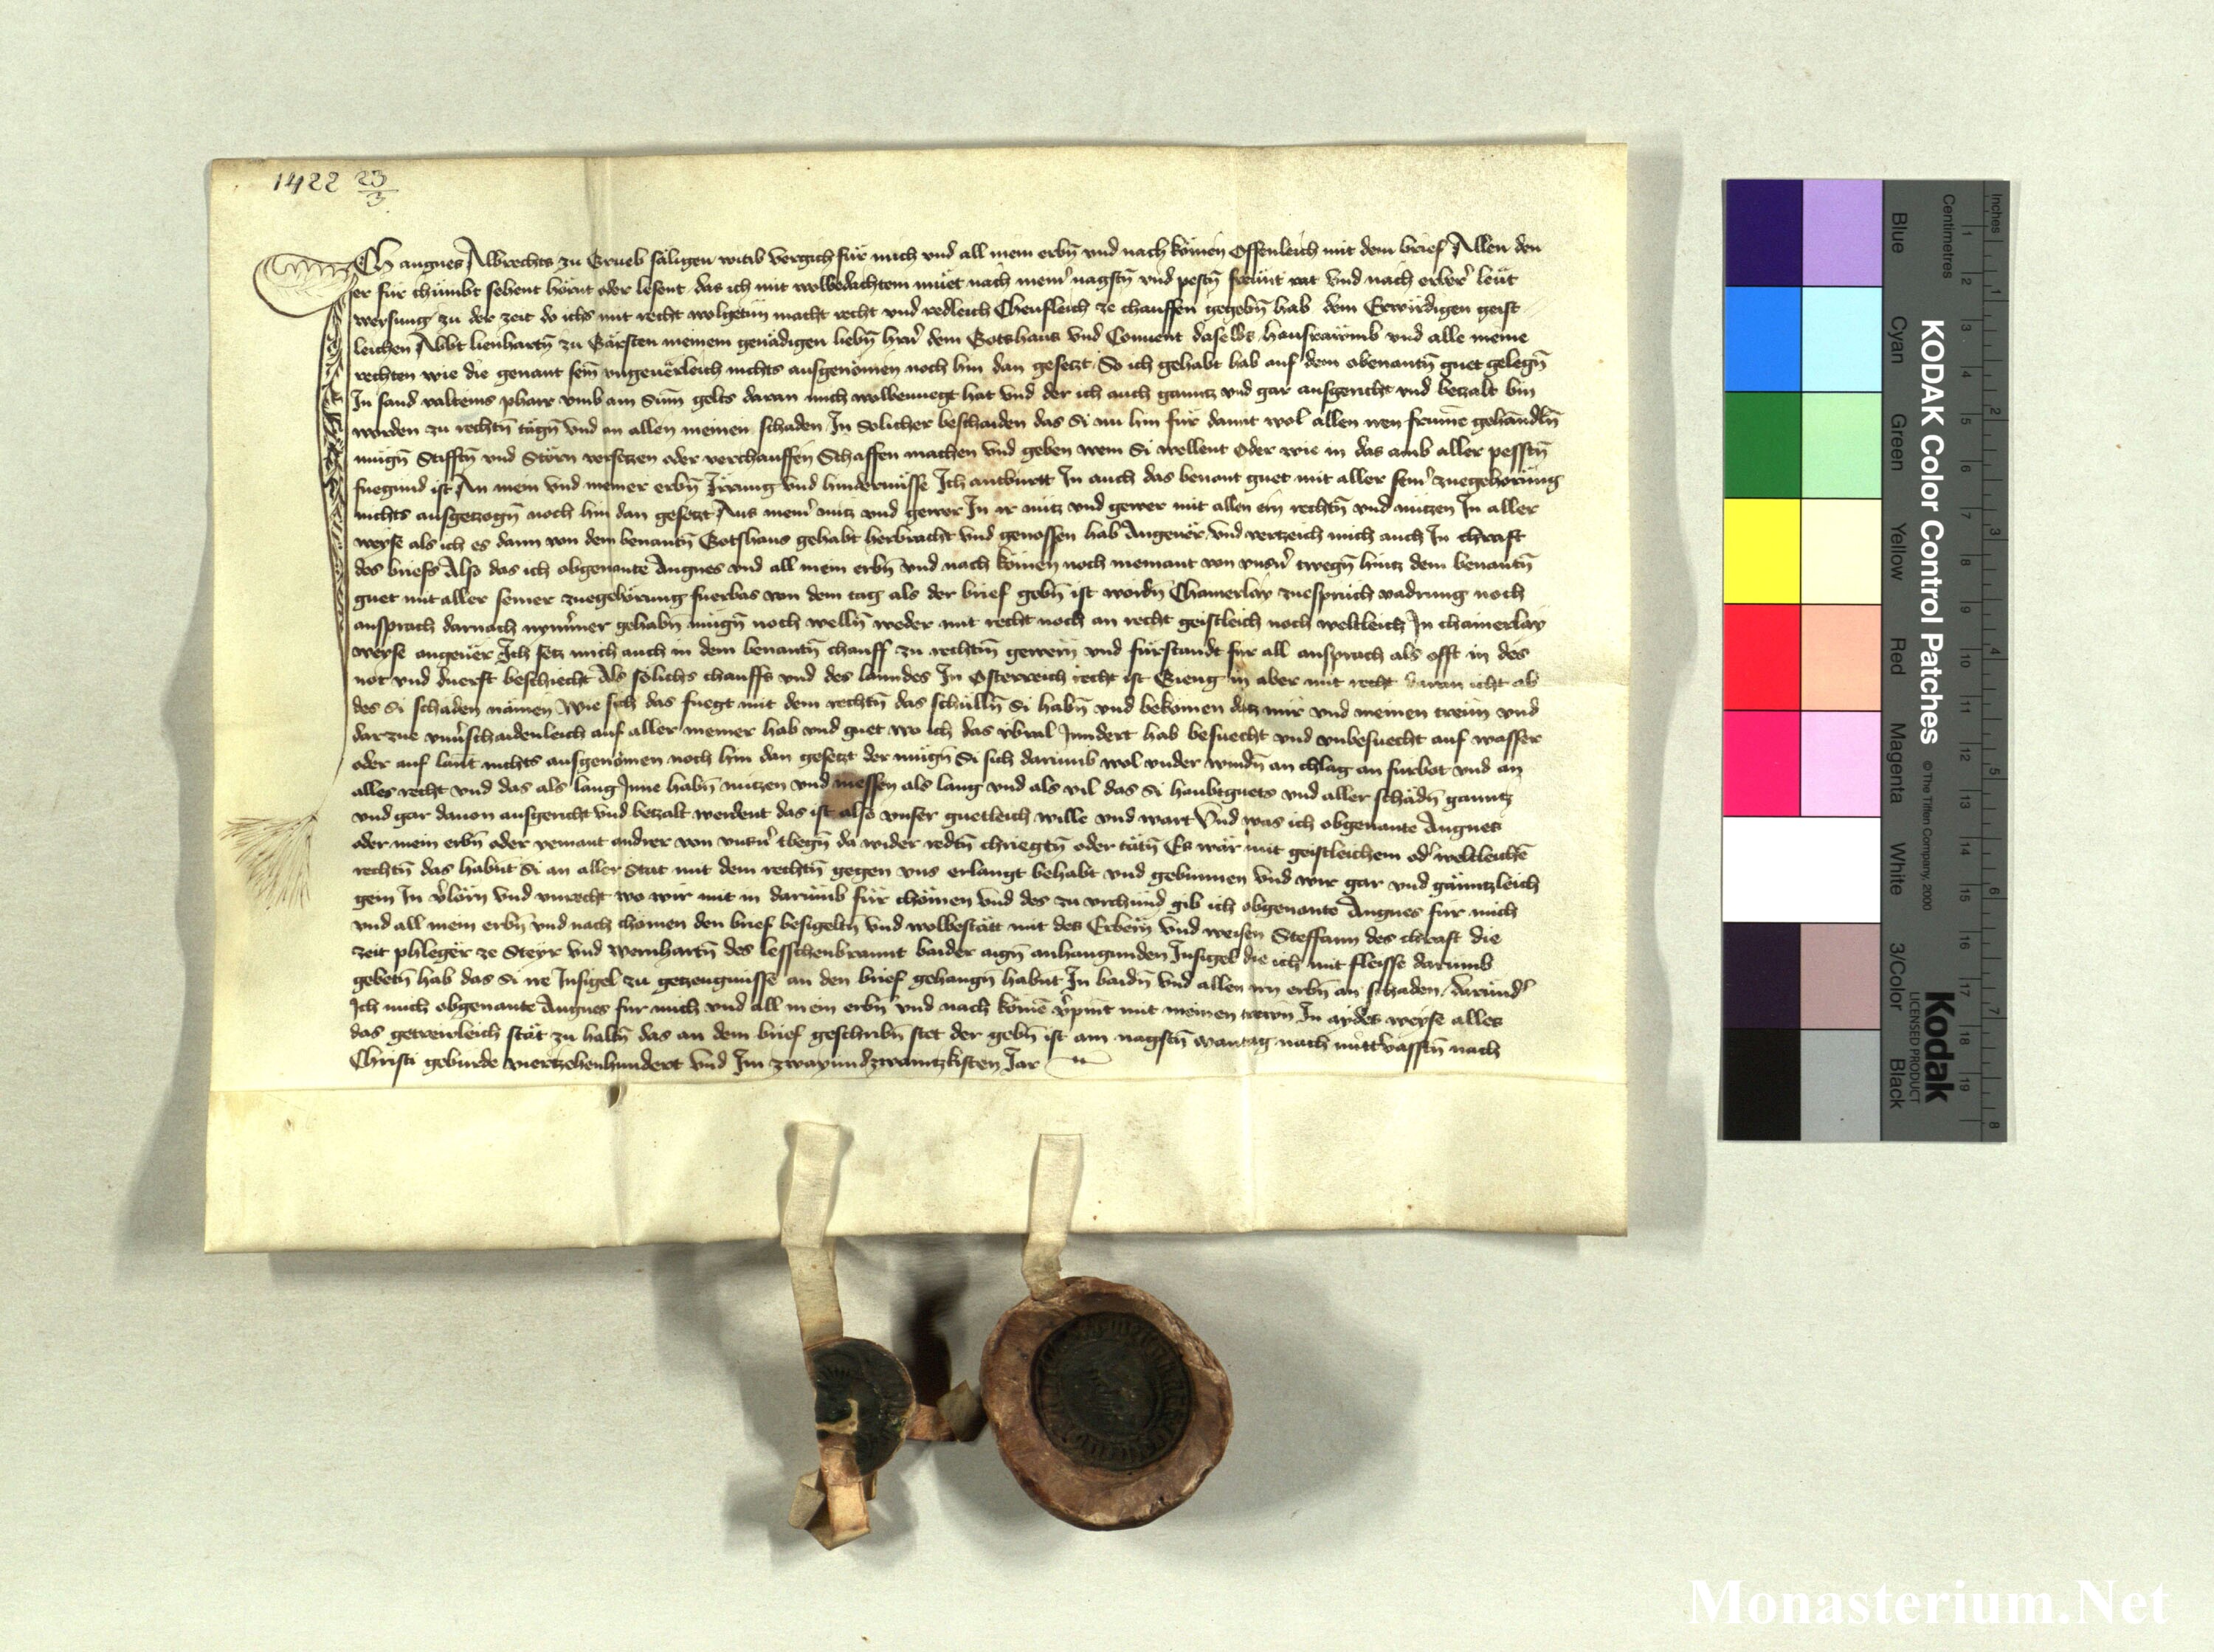 1422 23/3
Ich angnes Albrechts zu Grueb säligen witib vergich für mich vnd all mein erbn̄ vnd nach kömen Offenleich mit dem brief Allen den
er für chümbt sehent hörnt oder lesent das ich mit wolbedachtem müet nach meinˀ nagstn̄ vnd pestn̄ freünt rat vnd nach erberˀ leüt
weysung zu der zeit do ichs mit recht wolgetün macht recht vnd redleich Cheufleich ze chauffen gegebn̄ hab dem Erwirdigen geist
leichen Abbt lienhartn̄ zu Gärsten meinem genädigen liebn̄ hrn̄ dem Gotshaus vnd Conuent daselbs hausrawmb vnd alle meine
rechten wie die genant sein vngeuërleich nichts ausgenömen noch hin dan gesetzt So ich gehabt hab auf dem obenantn̄ guet gelegn̄
In sand valteins pharr vmb ain Sum̄ gelts daran mich wolbenuegt hat vnd der ich auch ganntz vnd gar ausgericht vnd betzalt bin
worden zu rechtn̄ tägn̄ vnd an allen meinen schaden In Solicher beschaiden das Si nu hin für damit wol allen iren frume gehandln̄
mügn̄ Stifftn̄ vnd Störn versetzen oder verchauffen Schaffen machen vnd geben wem Si wellent Oder wie in das aub aller pesstn̄
fuegund ist An mein vnd meiner erbn̄ Irrung vnd hindernüsse Ich antburtt In auch das benant guet mit aller seinˀ zuegehorüng
nichts ausgetzogn̄ noch hin dan gesetzt Aus meinˀ nütz vnd gewer In ir nütz vnd gewer mit allen ern rechtn̄ vnd nützen In aller
weyse als ich es dann von dem benantn̄ Gotshaus gehabt herbracht vnd genossen hab Angeuër vnd vertzeich mich auch In chraft
des briefs Also das ich obgenante Angnes vnd all mein erbn̄ vnd nach kömen noch niemant von vnsn̄ˀ wegn̄ hintz dem benantn̄
guet mit aller seiner zuegehörung fuerbas von dem tag als der brief gebn̄ ist wordn̄ Chainerlay zuespruch vadrung noch
ansprach darnach nymmer gehabn̄ mügn̄ noch welln̄ weder mit recht noch an recht geistleich noch weltleich In chainerlay
weyse angeuër Ich setz mich auch in dem benantn̄ chauff zu rechtm̄ gewern̄ vnd fürstandt für all ansprach als offt in des
not vnd duerft beschiecht Als sölichs chauffs vnd des lanndes In Osterreich recht ist Gieng in aber mit recht daran icht ab
des Si schaden nämen Wie sich das fuegt mit dem rechtn̄ das schülln̄ Si habn̄ vnd bekömen datz mir vnd meinen trewn vnd
darzue vnuˀschaidenleich auf aller meiner hab vnd guet wo ich das vberal Inndert hab besuecht vnd vnbesuecht auf wasser
oder auf lant nichts ausgenömen noch hin dan gesetzt der mügn̄ Si sich darümb wol vnder windn̄ an chlag an furbot vnd an
alles recht vnd das als lang Inne habn̄ nützen vnd niessen als lang vnd als vil das Si haubtguets vnd aller schädn̄ ganntz
vnd gar dauon ausgericht vnd betzalt werdent das ist also vnser guetleich wille vnd wart Vnd was ich obgenante Angnes
oder mein erbn̄ oder yemant andrer von vnsn̄ˀ wegn̄ da wider redtn̄ chriegtn̄ oder tätn̄ Es wär mit geistleichem odˀ weltleichē
rechtn̄ das habnt Si an aller Stat mit dem rechtn̄ gegen vns erlangt behabt vnd gebunnen vnd wir gar vnd gänntzleich
gein In vˀlörn vnd vnrecht wo wir mit in darümb für chömen Vnd des zu vrchünd gib ich obgenante Angnes für mich
vnd all mein erbn̄ vnd nach chömen den brief besigeltn̄ vnd wolbestätt mit des Erbern̄ vnd weisen Steffann des chraft die
zeit phleger ze Steyr vnd wernhartn̄ des lesschenbrannt baider aign̄ anhangunden Insigel die ich mit fleisse darümb
gebetn̄ hab das Si ire Insigel zu getzeugnüsse an den brief gehangn̄ habnt In baidn̄ vnd allen irn erbn̄ an schaden / Darundˀ
Ich mich obgenante Angnes für mich vnd all mein erbn̄ vnd nach komē vˀpint mit meinen trewn̄ In aydes weyse alles
das getrewleich stät zu haltn̄ das an dem brief geschribn̄ stet der gebn̄ ist am nagstn̄ mantag nach mittuasstn̄ nach
Christi geburde viertzehenhundert vnd Im zwayundzwaintzkisten Jar
KODAK Color Control Patches
© The Tiffen Company, 2000
Kodak
LICENSED PRODUCT
Inches
Centimetres
Blue
Cyan
Green
Yellow
Red
Magenta
White
3/Color
Black
1 2 3 4 5 6 7 8
1 2 3 4 5 6 7 8 9 10 11 12 13 14 15 16 17 18 19
Monasterium.Net